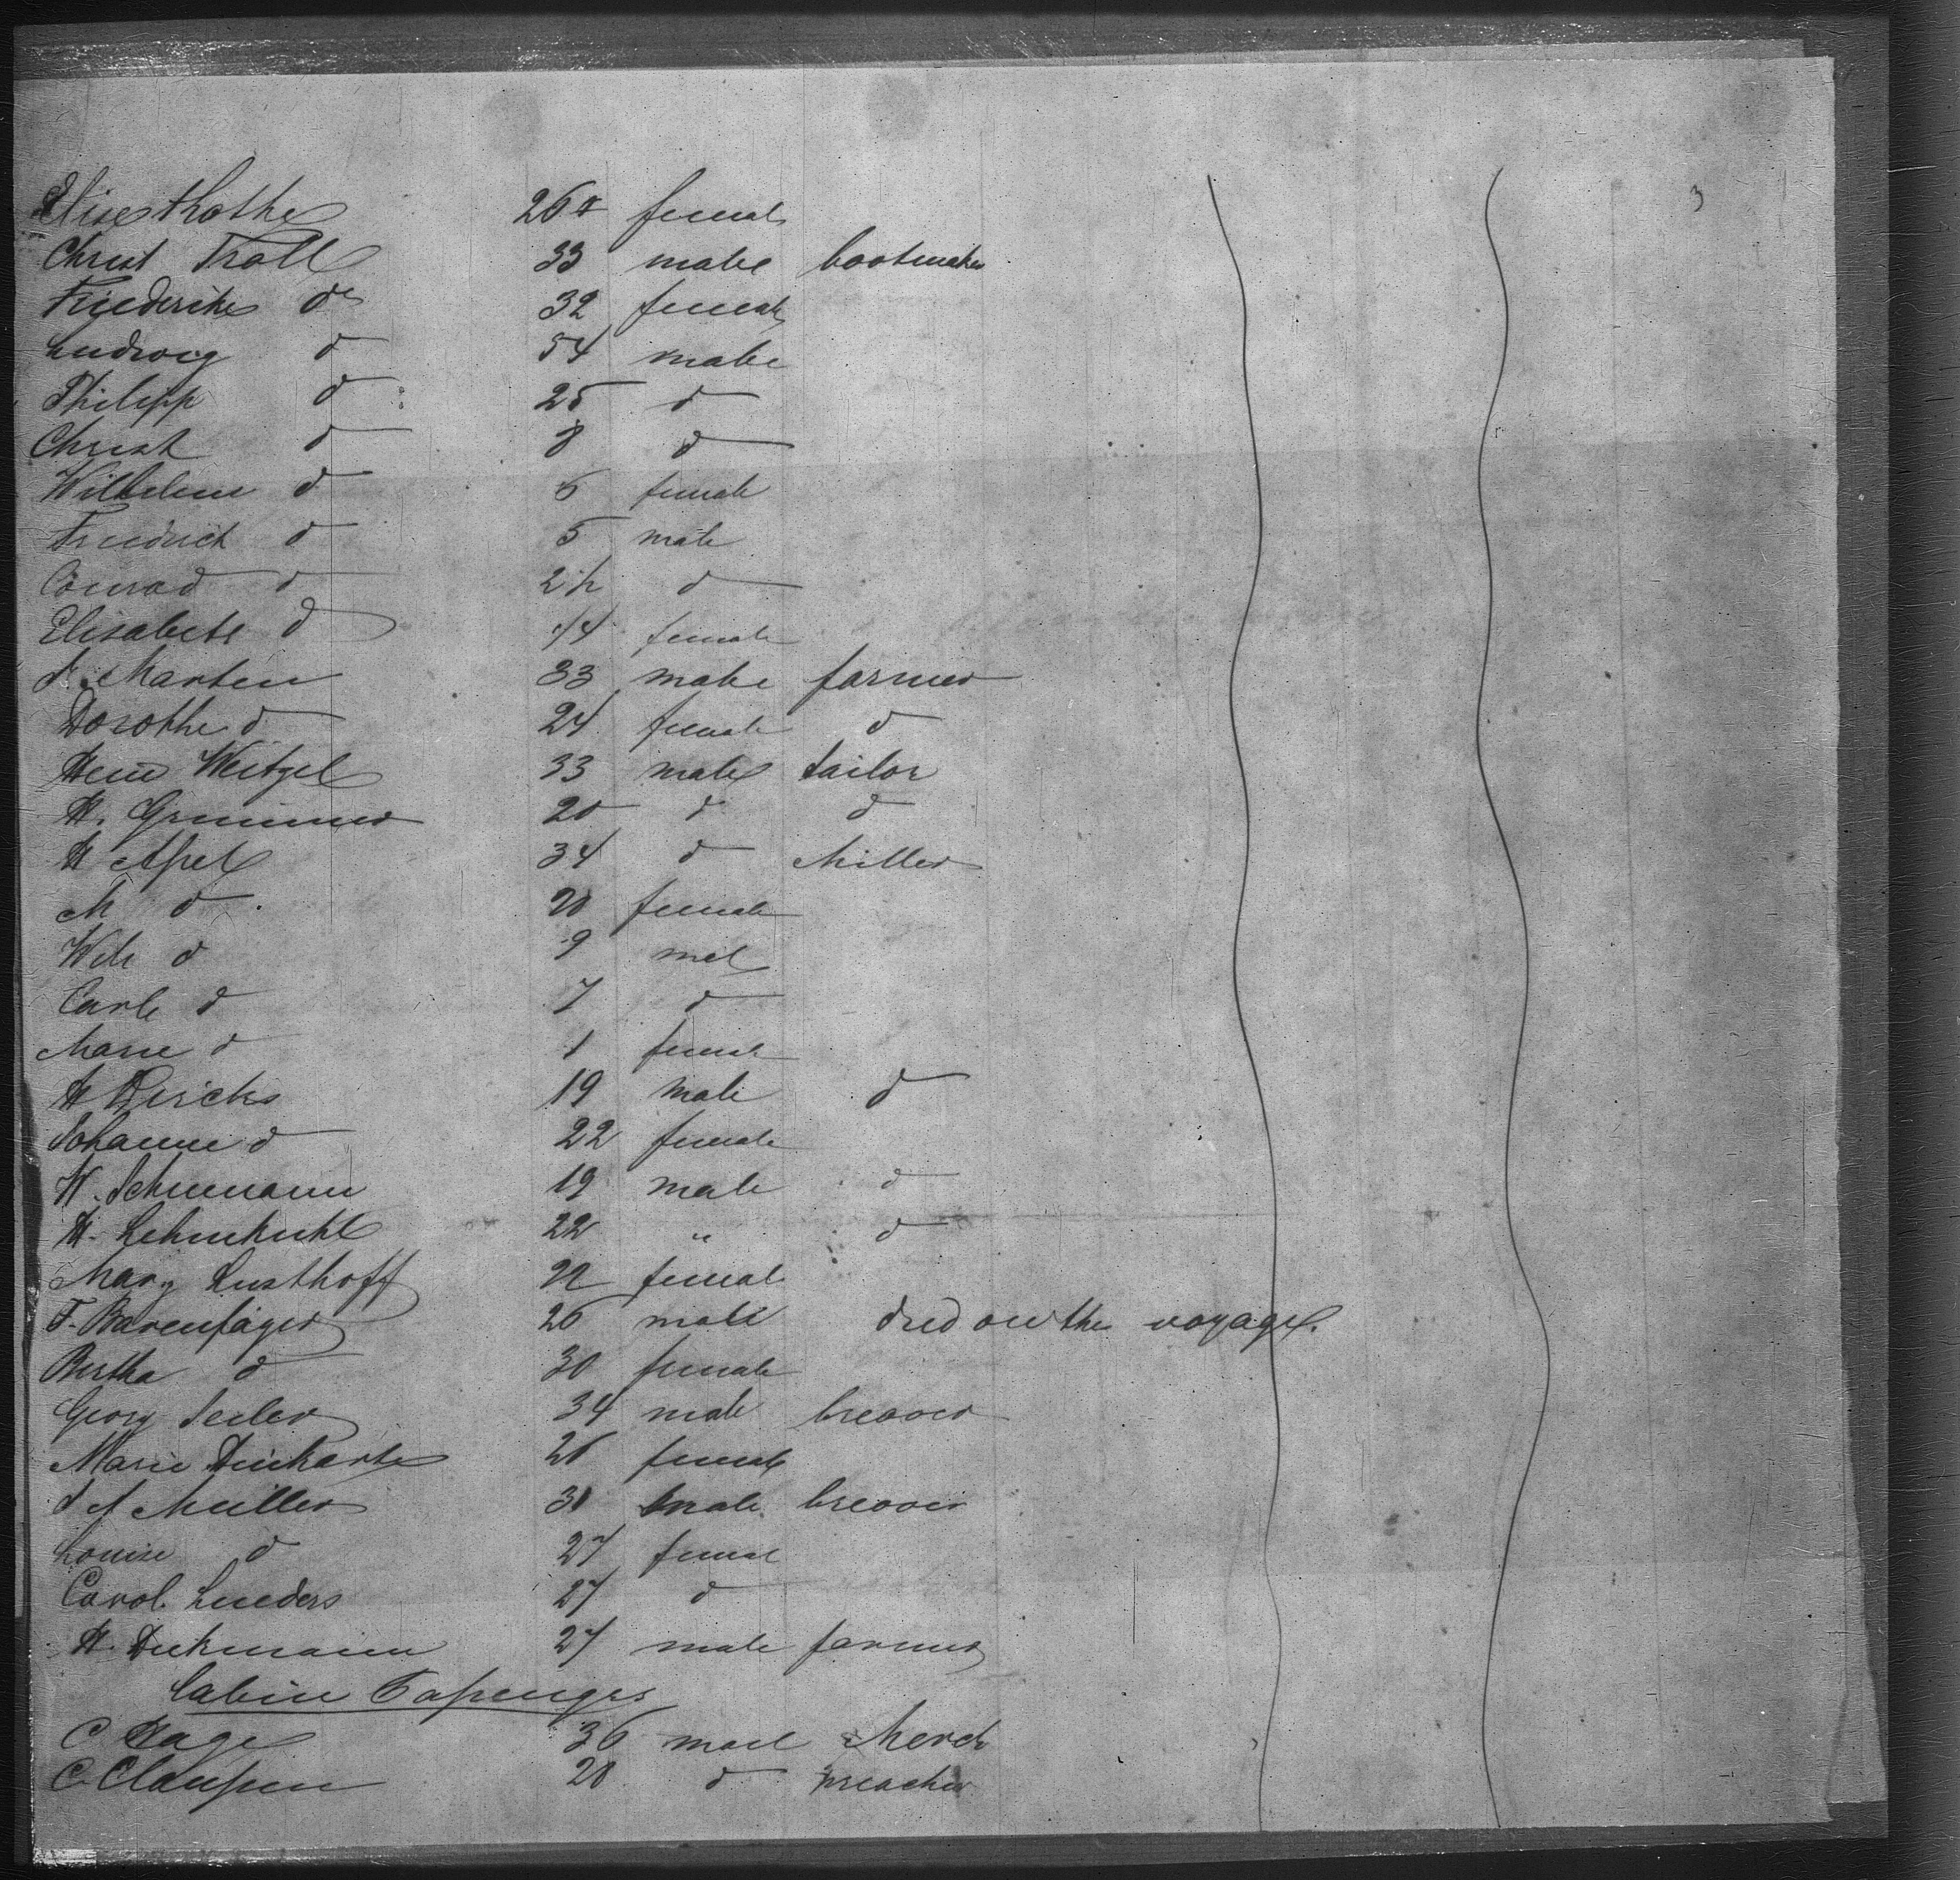 Elise Kothe 26 female
Christ Troll 33 male bootmaker
Friederike do 32 female
Ludwig d 54 male
Philipp d 25 d
Christ d 8 d
Wilhelm d 6 female
Friedrich d 5 male
Conrad d d
Elisabeth d female
Marten 33 male farmer
Dorothe d 24 female d
Weitzel 33 male tailor
H. 20 d d
H Apel 34 d Miller
M d female
Wilh d 9 mal
Carl d 7 d
Marie d 1 femal
H Diercks 19 male d
Johanne d 22 female
H. Schumann 19 male d
H. Lehmkuhl 22 " d
Mary Lusthoff 22 femal
F. 26 male died on the voyage.
Bertha d 30 female
Georg Seiler 34 male breower
Marie 26 female
Muller male breower
Louise d 27 femal
Carol. Lueders 27 d
H. Diekmann 27 male farmer
Cabin
C Hage 36 mael Merch
C. Claussen 28 d preacher
3